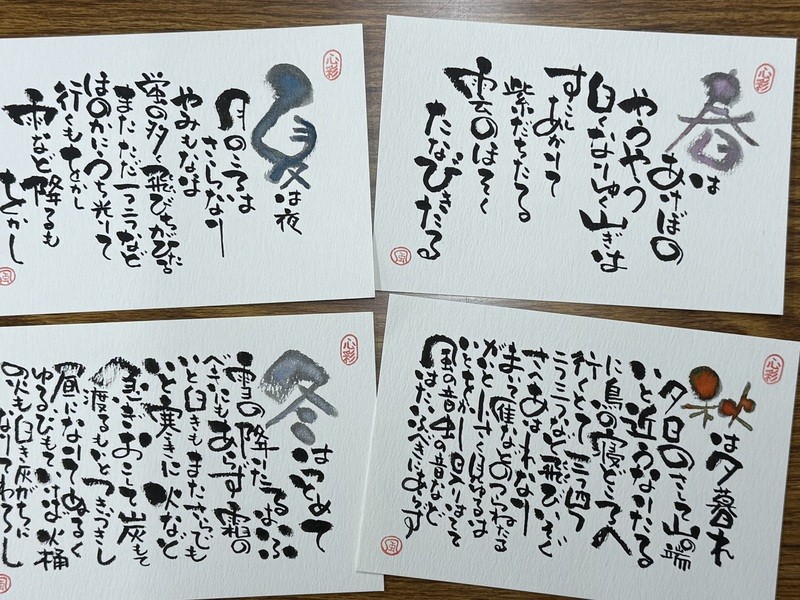 春は
あけぼの
やうやう
白くなりゆく山ぎは
すこし
あかりて
紫だちたる
雲のほそく
たなびきたる
心彩
風
夏は夜
月のころは
さらなり
やみもなほ
蛍の多く飛びちがひたる
また ただ一つ二つなど
ほのかにうち光りて
行くもをかし
雨など降るも
をかし
心彩
風
秋は夕暮れ
夕日のさして山の端
いと近うなりたる
に烏の寝どころへ
行くとて 三つ四つ
二つ三つなど飛びいそぐ
さへあはれなり
まいて雁などのつらねたる
がいと小さく見ゆるは
いとをかし 日入りはてて
風の音 虫の音など
はたいふべきにあらず
心彩
風
冬はつとめて
雪の降りたるはいふ
べきにもあらず 霜の
いと白きも またさらでも
いと寒きに 火など
急ぎおこして 炭もて
渡るもいとつきづきし
昼になりて ぬるく
ゆるびもていけば 火桶
の火も白き灰がちに
なりてわろし
心彩
風